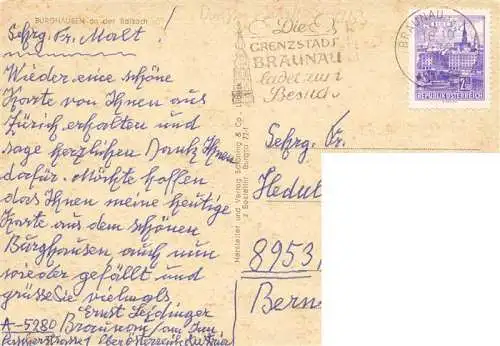 BURGHAUSEN an der Salzach
Sehrg. Fr. Malt!
Wieder eine schöne
Karte von Ihnen aus
Zürich erhalten und
sage herzlichen Dank Ihnen
dafür. Möchte hoffen
das Ihnen meine heutige
Karte aus dem schönen
Burghausen auch nun
wieder gefällt und
grüsse Sie vielmals
Ernst Leidinger
A-5280 Braunau/am Inn
1 Oberösterreich Austria
Hersteller und Verlag Schöning & Co · Lübeck
Bestellnr. Burgha 724
Die
GRENZSTADT
BRAUNAU
ladet zum
Besuch
BRAUNAU
REPUBLIK ÖSTERREICH
Sehrg. Fr.
Hedw
8953
Bern